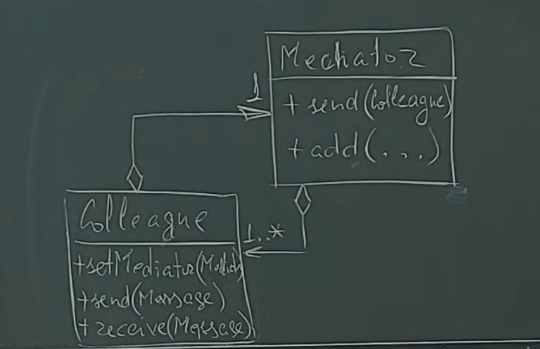 Mediator
+ send(Colleague)
+ add(...)
1
Colleague
1..*
+setMediator(
+send(Message)
+receive(Message)